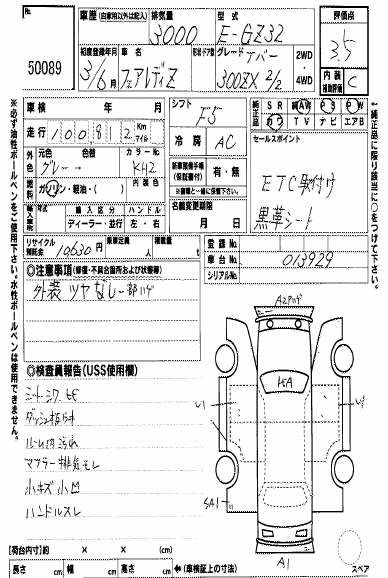 No.
50089
車歴 (自家用以外は記入)
排気量
3000
型式
E-GZ32
評価点
3.5
初度登録年月
3/6月
車名
フェアレディZ
形状ドア数
グレード
300ZX 2/2
2WD
4WD
内装
補助評価
C
車検 年 月
走行 100812 Km
マイル
外装色
元色
グレー→
色替
カラーNo.
KH2
燃料
ガソリン・軽油・( )
内装色
輸入車
年式
輸入区分
ディーラー・並行
ハンドル
左・右
リサイクル預託金
10630円
乗車定員
人
積載量
t
シフト
F5
冷房
AC
新車整備手帳
(保証書付)
有・無
※書類と一緒に保管下さい
名義変更期限
月 日
純正品
SR
純AW
PS
PW
カワ
TV
ナビ
エアB
セールスポイント
ETC取付け
黒革シート
登録No.
車台No.
013929
シリアルNo.
◎注意事項(修復・不具合箇所および状態等)
外装 ツヤなし 一部ハゲ
◎検査員報告(USS使用欄)
シートシワ ヒビ
マフラー排気モレ
小キズ小凹
ハンドルスレ
XA
A1
(荷台内寸)約 × × (cm)
長さ cm 幅 cm 高さ cm ←(車検証上の寸法)
スペア
※必ず油性ボールペンをご使用下さい。水性ボールペンは使用できません。
純正品に限り該当に○をつけて下さい。